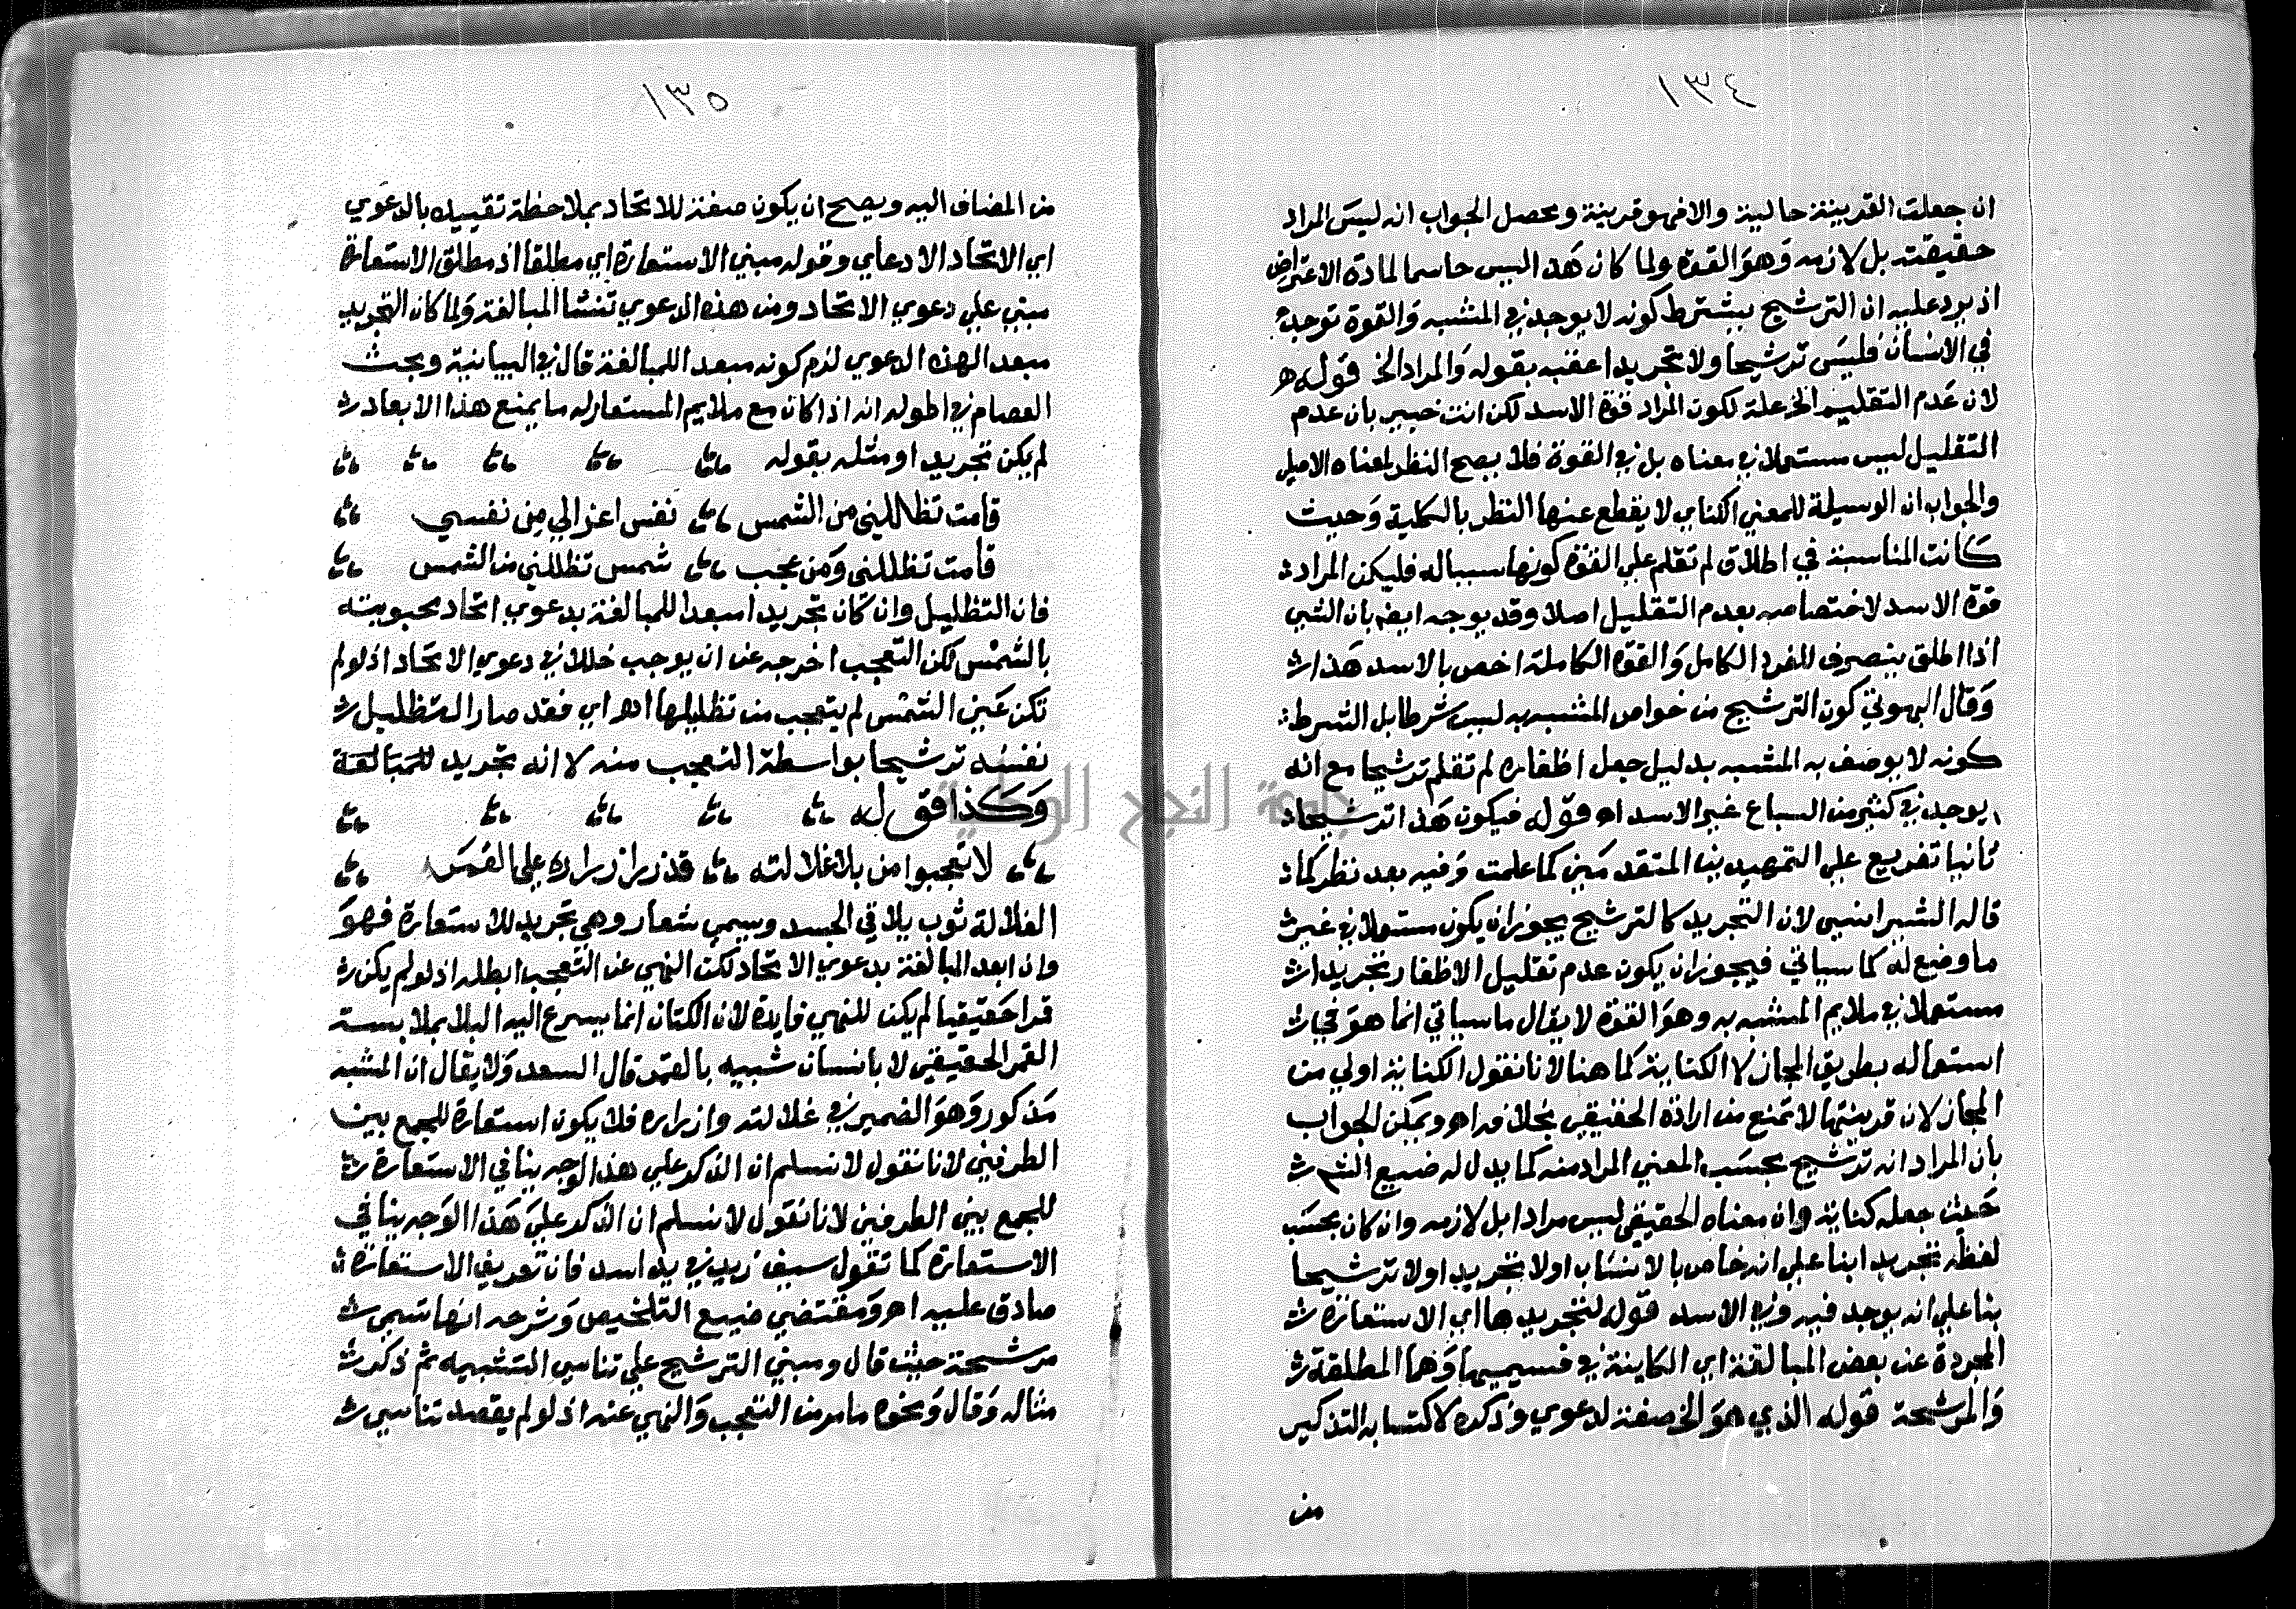 ١٣٤
ان جعلت القرينة حالية والا فهو قرينة ومحصل الجواب انه ليس المراد
حقيقته بل لازمه وهو القوة ولما كان هذا ليس حاسما لمادة الاعتراض
اذ يرد عليه ان الترشيح يشترط كونه لا يوجد في المشبه والقوة توجد
في الانسان فليس ترشيحا ولا تجريدا عقبه بقوله والمراد الخ قوله
لان عدم التقليم الخ علة لكون المراد قوة الاسد لكن انت خبير بان عدم
التقليل ليس مستعملا في معناه بل في القوة فلا يصح النظر لمعناه الاصلي
والجواب ان الوسيلة للمعني الكناي لا يقطع عنها النظر بالكلية وحيث
كانت المناسبة في اطلاق لم تقلم علي القوة كونها سببا له فليكن المراد
قوة الاسد لاختصاصه بعدم التقليل اصلا وقد يوجه ايضه بان الشي
اذا اطلق ينصرف للفرد الكامل والقوة الكاملة اخص بالاسد هذا
وقال البهوتي كون الترشيح من خواص المشبه به ليس شرطا بل الشرط
كونه لا يوصف به المشبه بدليل جعل اظفاره لم تقلم ترشيحا مع انه
يوجد في كثير من السباع غير الاسد اه قوله فيكون هذا ترشيحا
ثانيا تفريع علي التمهيدين المتقدمين كما علمت وفيه بعد نظر كما
قاله الشبرانسي لان التجريد كالترشيح يجوز ان يكون مستعملا في غير
ما وضع له كما سياتي فيجوز ان يكون عدم تقليل الاظفار تجريدا
مستعملا في ملايم المشبه به وهو القوة لا يقال ما سياتي انما هو في
استعماله بطريق المجاز لا الكناية كما هنا لانا نقول الكناية اولي من
المجاز لان قرينتها لا تمنع من ارادة الحقيقي بخلافه اه ويمكن الجواب
بان المراد انه ترشيح بحسب المعني المراد منه كما يدل له ضيع الش
حيث جعله كناية وان معناه الحقيقي ليس مرادا بل لازمه وان كان بحسب
لفظه تجريد ابنا علي انه خاص بالانسان اولا تجريد اولا ترشيحا
بنا علي انه يوجد فيه وفي الاسد قوله لتجريدها اي الاستعارة
المجردة عن بعض المبالغة اي الكاينة في قسيميها وهما المطلقة
والمرشحة قوله الذي هو الخ صفة لدعوي وذكره لاكتسابه التذكير
من
١٣٥
من المضاف اليه ويصح ان يكون صفة للاتحاد بملاحظة تقييده بالدعوي
اي الاتحاد الادعاي وقوله مبني الاستعارة اي مطلقا اذ مطلق الاستعارة
مبني علي دعوي الاتحاد ومن هذه الدعوي تنشا المبالغة ولما كان التجريد
مبعدا لهذه الدعوي لزم كونه مبعدا للمبالغة قال في البيانية وبحث
العصام في اطوله انه اذا كان مع ملايم المستعار له ما يمنع هذا الابعاد
لم يكن تجريدا ومثله بقوله
قامت تظللني من الشمس نفس اعز الي من نفسي
قامت تظللني ومن عجب شمس تظللني من الشمس
فان التظليل وان كان تجريدا مبعدا للمبالغة بدعوي اتحاد محبوبته
بالشمس لكن التعجب اخرجه عن ان يوجب خللا في دعوي الاتحاد اذ لو لم
تكن عين الشمس لم يتعجب من تظليلها اه اي فقد صار التظليل
نفسه ترشيحا بواسطة التعجب منه لا انه تجريد للمبالغة
وكذا قوله
لا تعجبوا من بلا غلالته قد زر ازراره علي القمر
الغلالة ثوب يلاقي الجسد ويسمي شعار وهي تجريد للاستعارة فهو
وان ابعد المبالغة بدعوي الاتحاد لكن النهي عن التعجب ابطله اذ لو لم يكن
قمرا حقيقيا لم يكن للنهي فايدة لان الكتان انما يسرع اليه البلا بملابسته
القمر الحقيقي لا بانسان شبيه بالقمر قال السعد ولا يقال ان المشبه
مذكور وهو الضمير في غلالته وازراره فلا يكون استعارة للجمع بين
الطرفين لانا نقول لا نسلم ان الذكر علي هذا الوجه ينافي الاستعارة
للجمع بين الطرفين لانا نقول لا نسلم ان الذكر علي هذا الوجه ينافي
الاستعارة كما تقول سيف زيد في يد اسد فان تعريف الاستعارة
صادق عليه اه ومقتضي ضيع التلخيص وشرحه انها تسمي
مرشحة حيث قال ومبني الترشيح علي تناسي التشبيه ثم ذكر
مثاله وقال ونحوه ما مر من التعجب والنهي عنه اذ لو لم يقصد تناسي
جامعة النجاح الوطنية